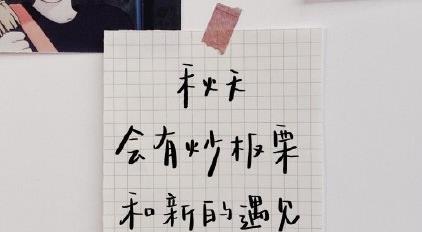 秋天
会有炒板栗
和新的遇见